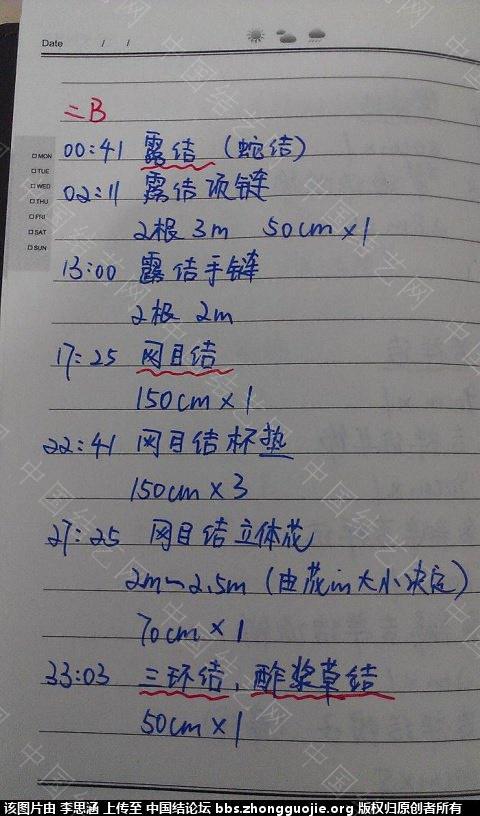 Date / /
二B
MON
TUE
WED
THU
FRI
SAT
SUN
00:41 露结（蛇结）
02:11 露结项链
2根 3m 50cm×1
13:00 露结手链
2根 2m
17:25 网目结
150cm×1
22:41 网目结杯垫
150cm×3
27:25 网目结立体花
2m~2.5m（由花in大小决定）
70cm×1
33:03 三环结，酢浆草结
50cm×1
中国结艺网
该图片由 李思涵 上传至 中国结论坛 bbs.zhongguojie.org 版权归原创者所有